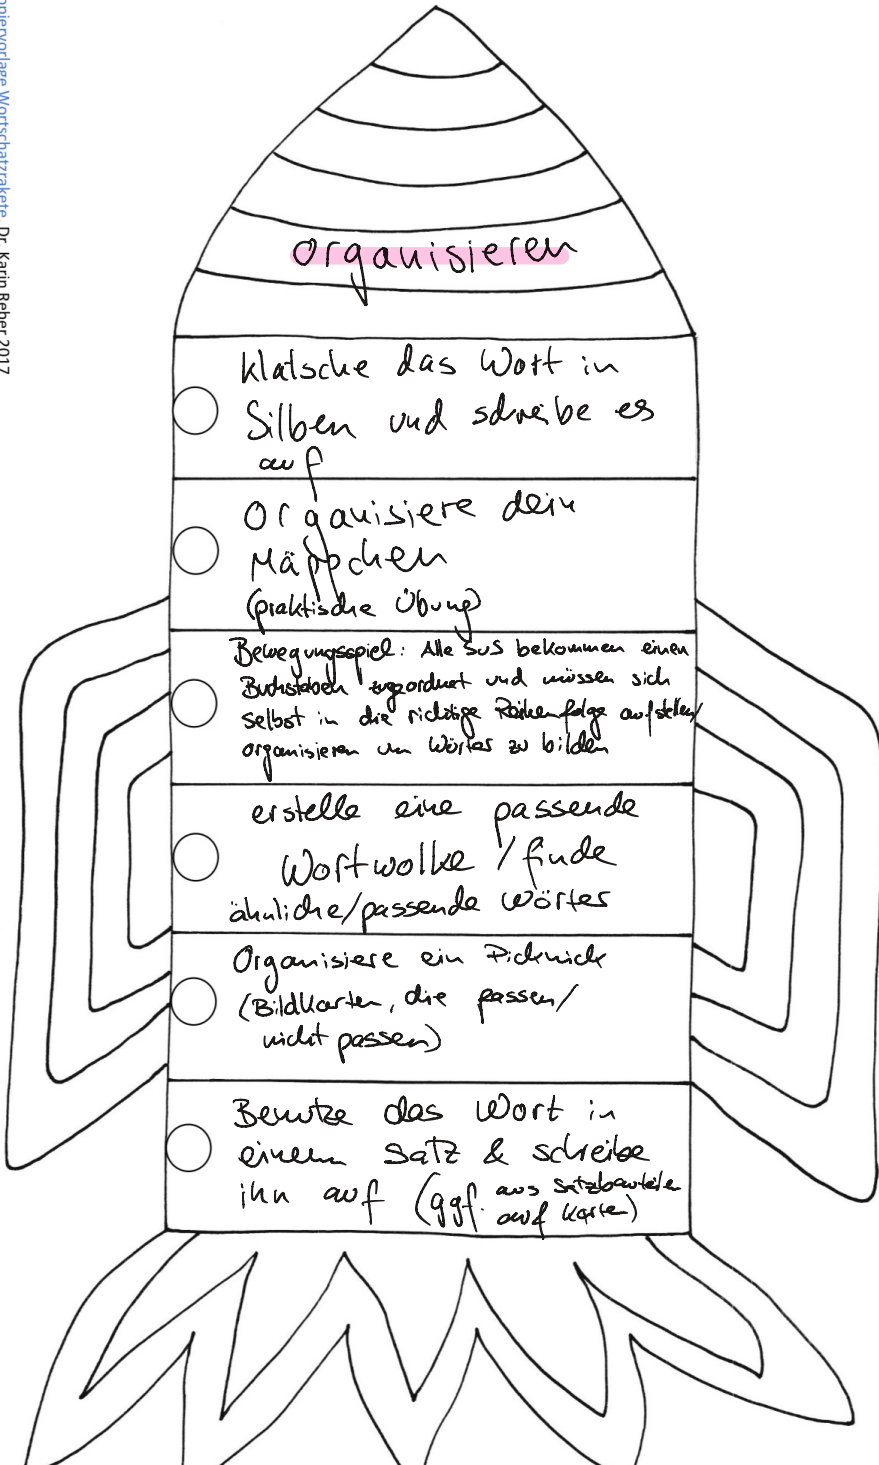 opiervorlage Wortschatzrakete, Dr. Karin Reber 2017
organisieren
klatsche das Wort in
Silben und schreibe es
auf
Organisiere dein
Mäppchen
(praktische Übung)
Bewegungsspiel: Alle SuS bekommen einen
Buchstaben zugeordnet und müssen sich
selbst in die richtige Reihenfolge aufstellen/
organisieren um Wörter zu bilden
erstelle eine passende
Wortwolke / finde
ähnliche/passende Wörter
Organisiere ein Picknick
(Bildkarten, die passen/
nicht passen)
Benutze das Wort in
einem Satz & schreibe
ihn auf (ggf. aus Satzbauteilen
auf Karten)